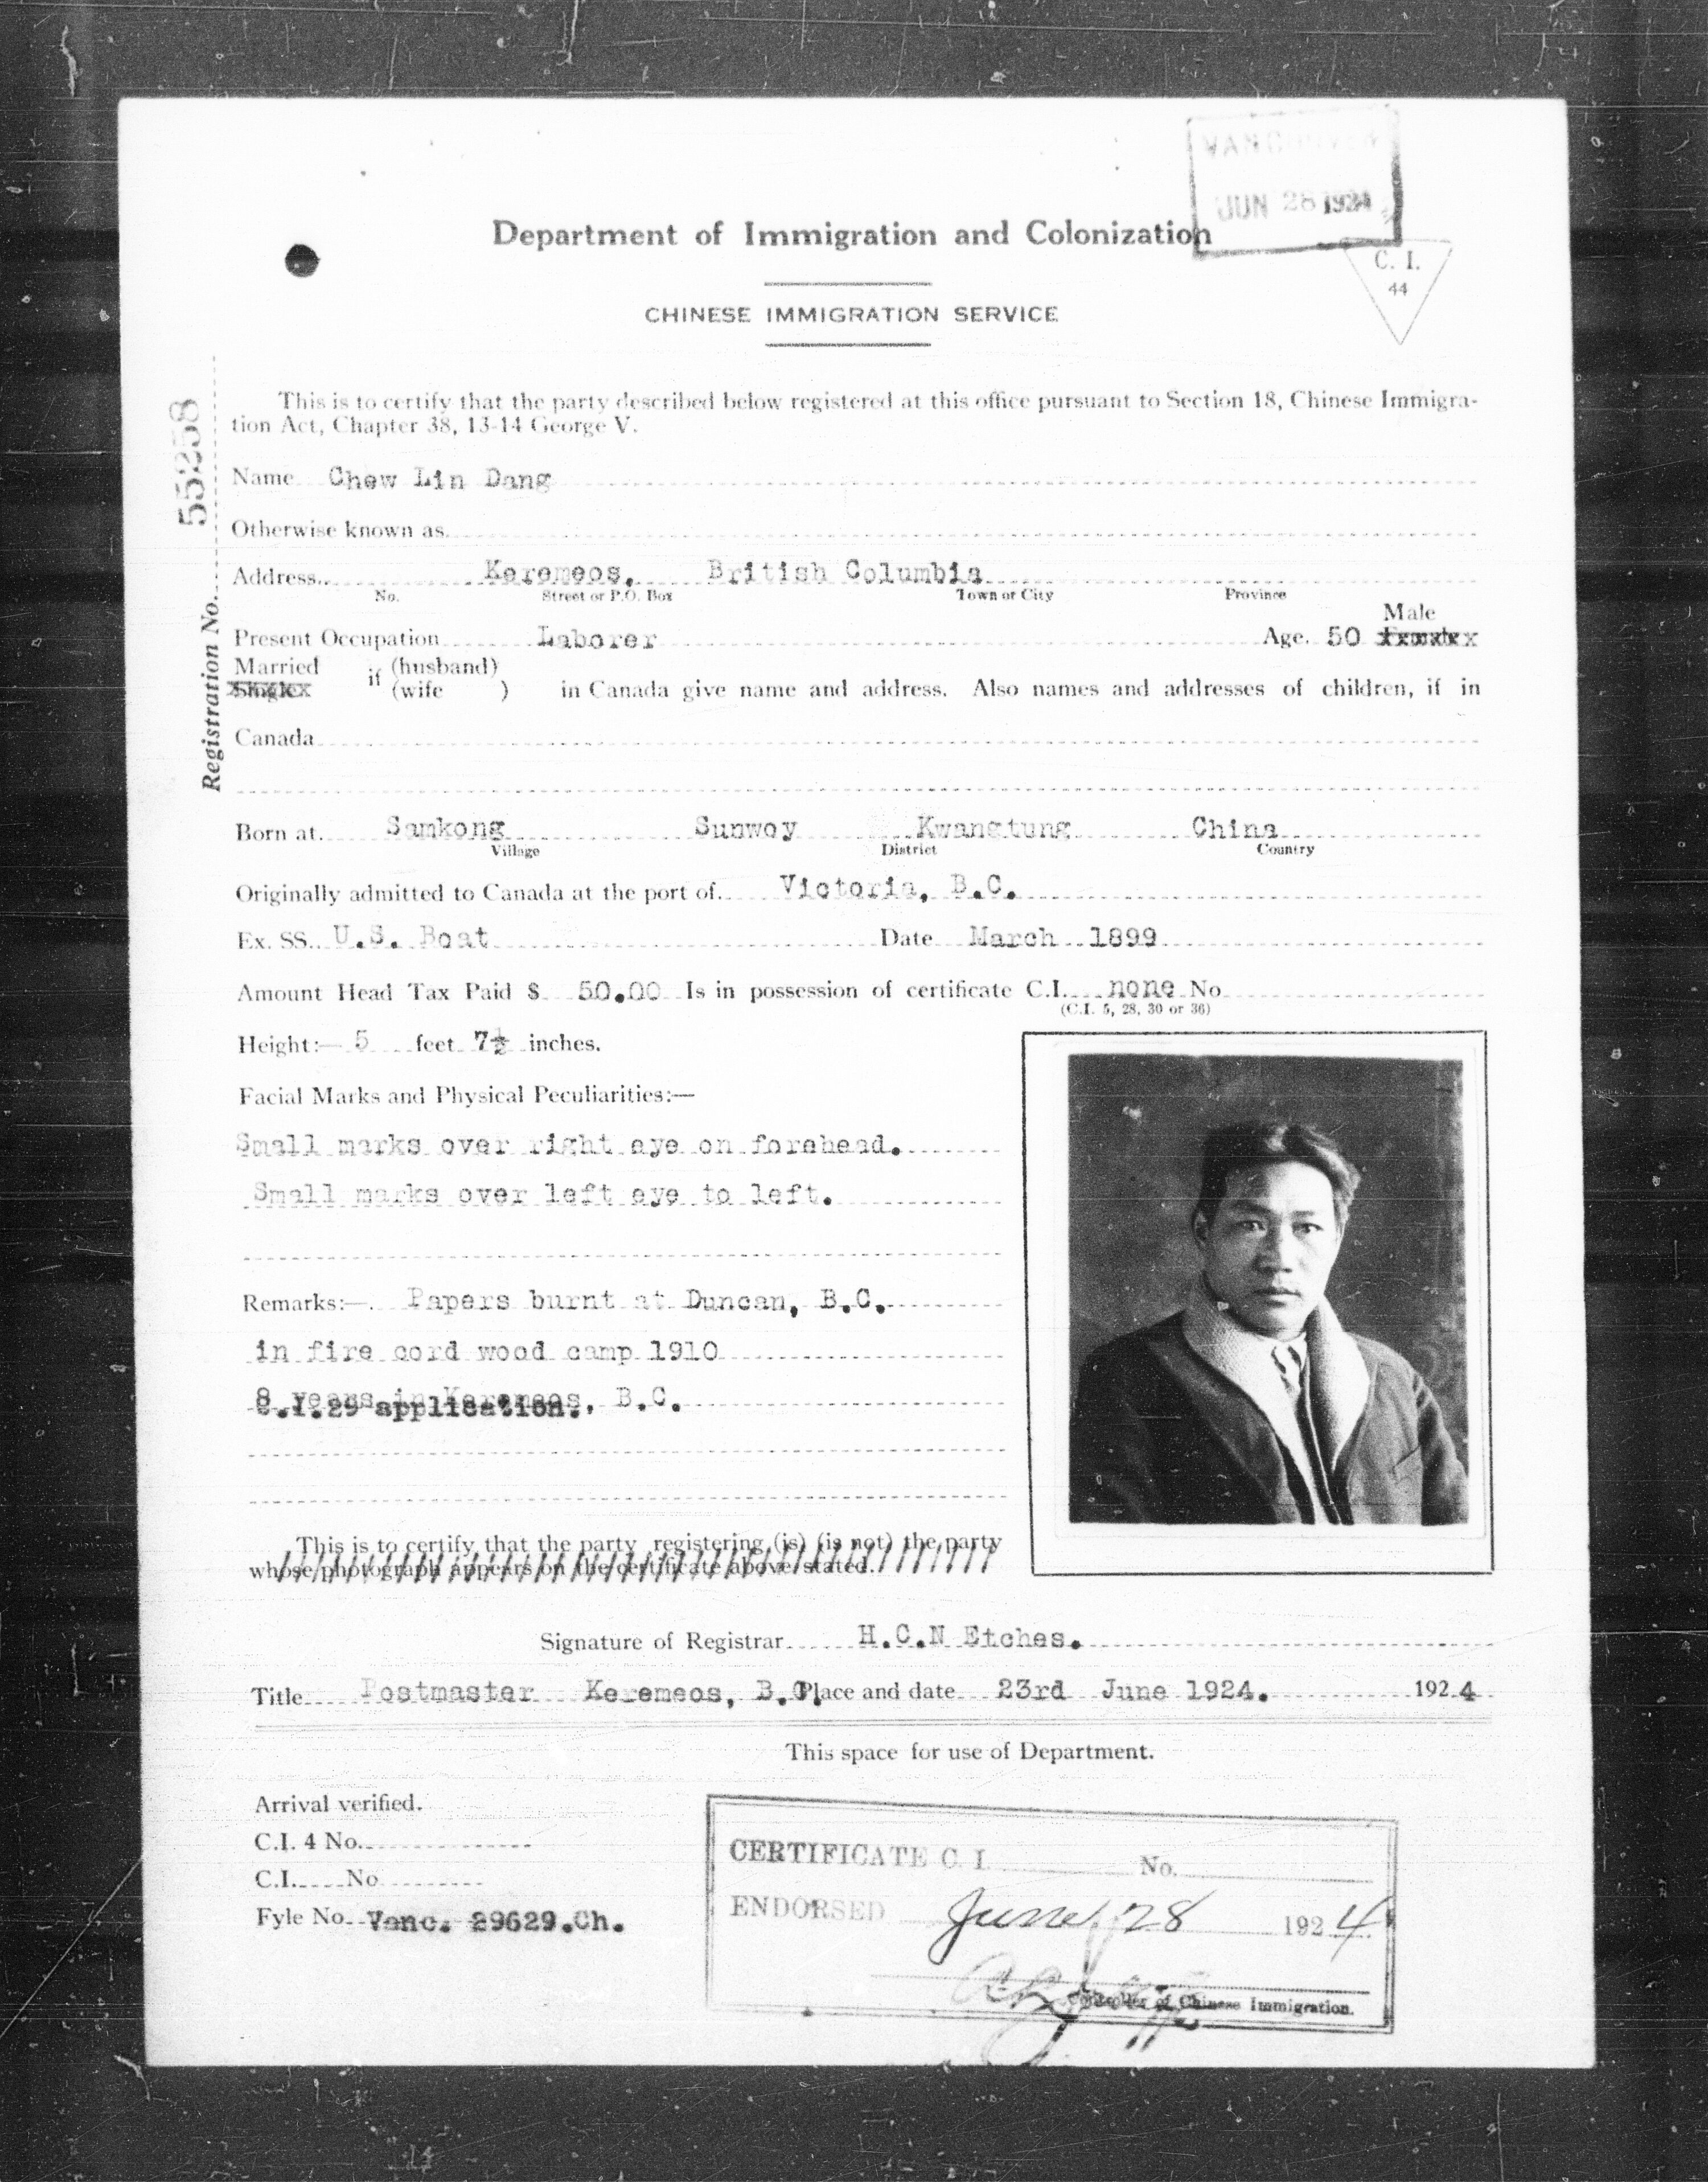 VANCOUVER
JUN 28 1924
Department of Immigration and Colonization
C. I.
44
CHINESE IMMIGRATION SERVICE
This is to certify that the party described below registered at this office pursuant to Section 18, Chinese Immigra-
tion Act, Chapter 38, 13-14 George V.
Registration No. 55258
Name Chew Lin Dang
Otherwise known as
Address Keremeos, British Columbia
No. Street or P.O. Box Town or City Province
Male
Present Occupation Laborer Age. 50 Female
Married if (husband)
Single (wife ) in Canada give name and address. Also names and addresses of children, if in
Canada
Born at Samkong Sunwoy Kwangtung China
Village District Country
Originally admitted to Canada at the port of Victoria, B.C.
Ex. SS. U.S. Boat Date March 1899
Amount Head Tax Paid $ 50.00 Is in possession of certificate C.I. none No
(C.I. 5, 28, 30 or 36)
Height:— 5 feet 7½ inches.
Facial Marks and Physical Peculiarities:—
Small marks over right eye on forehead.
Small marks over left eye to left.
Remarks:— Papers burnt at Duncan, B.C.
in fire cord wood camp 1910
8 years in Keremeos, B.C.
C.I.29 application.
This is to certify that the party registering (is) (is not) the party
whose photograph appears on the certificate above stated.
Signature of Registrar H.C.N Etches.
Title Postmaster Keremeos, B.C. Place and date 23rd June 1924. 1924
This space for use of Department.
Arrival verified.
C.I. 4 No.
C.I. No
Fyle No. Vanc. 29629.Ch.
CERTIFICATE C. I. No.
ENDORSED June 28 1924
Controller of Chinese Immigration.